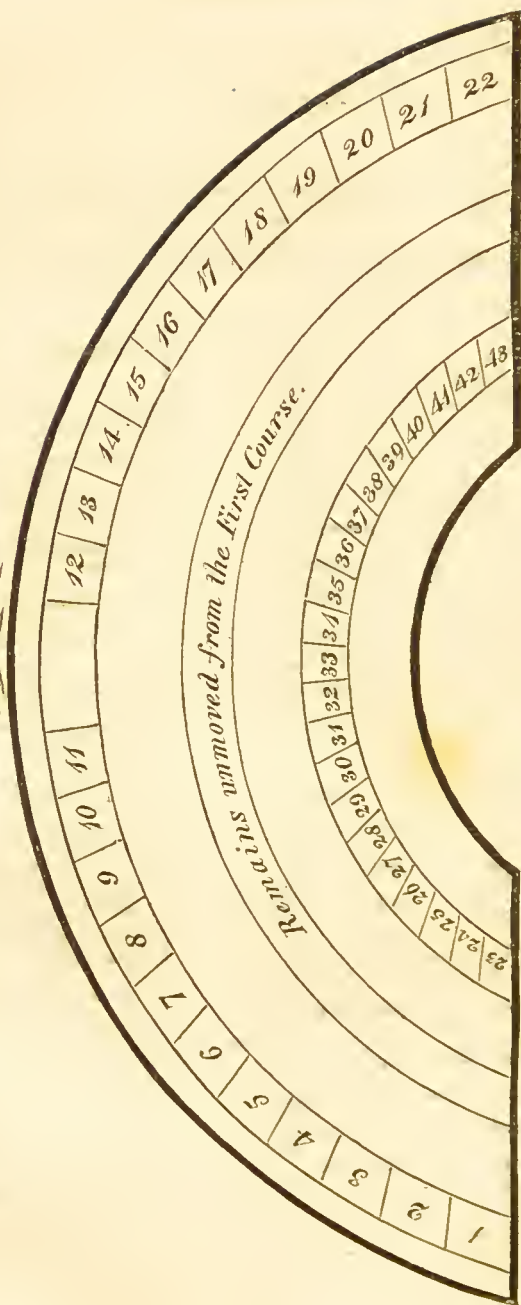 1 2 3 4 5 6 7 8 9 10 11 12 13 14 15 16 17 18 19 20 21 22
Remains unmoved from the First Course.
23 24 25 26 27 28 29 30 31 32 33 34 35 36 37 38 39 40 41 42 43